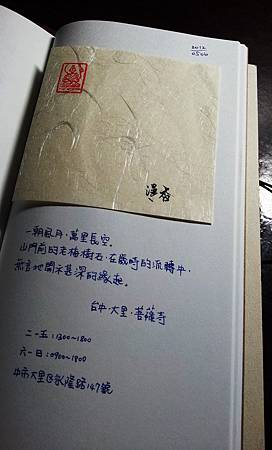 2012
0506
一朝風月，萬里長空。
山門前的老梅樹右，在歲時的流轉中，
無言地開示甚深的緣起。
台中·大里·菩薩寺
二－五：1300~1800
六－日：0900~1800
中市大里區永隆路147號